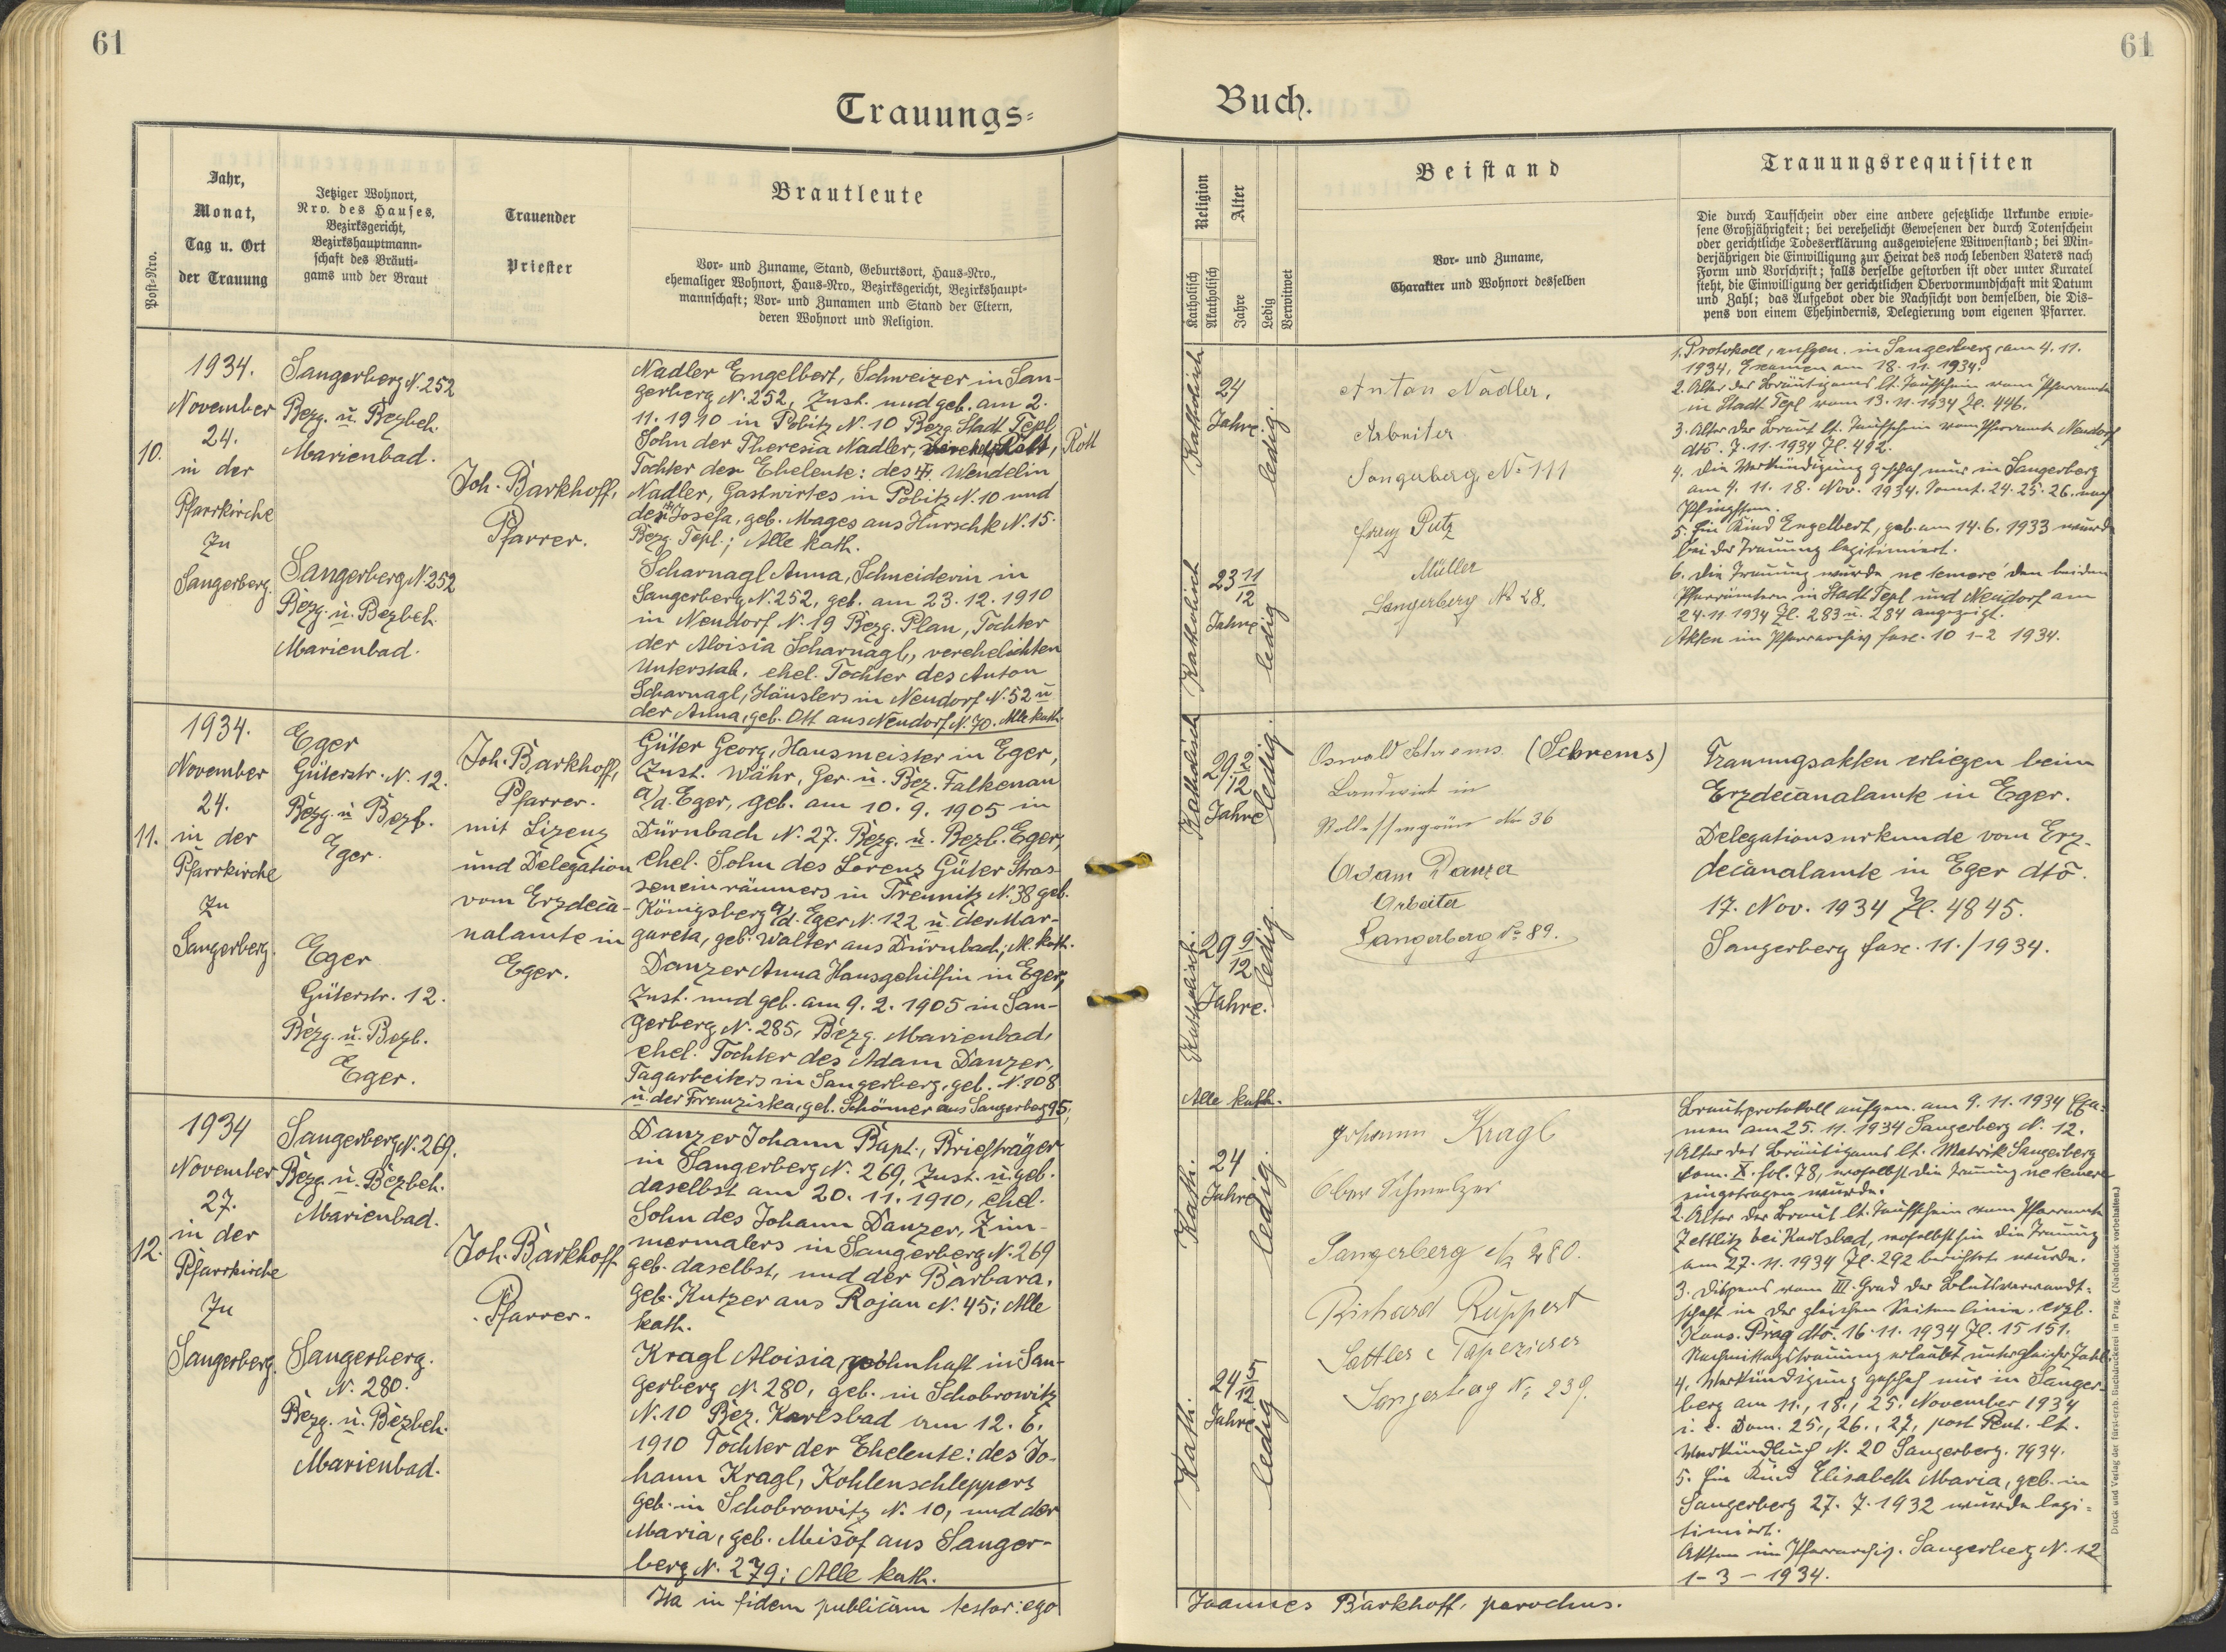 61
61
Trauungs=
Buch.
Post-Nro.
Jahr,
Monat,
Tag u. Ort
der Trauung
Jetziger Wohnort,
Nro. des Hauses,
Bezirksgericht,
Bezirkshauptmann-
schaft des Bräuti-
gams und der Braut
Trauender
Priester
Brautleute
Vor- und Zuname, Stand, Geburtsort, Haus-Nro.,
ehemaliger Wohnort, Haus-Nro., Bezirksgericht, Bezirkshaupt-
mannschaft; Vor- und Zunamen und Stand der Eltern,
deren Wohnort und Religion.
Religion
Katholisch
Akatholisch
Alter
Jahre
Ledig
Verwitwet
Beistand
Vor- und Zuname,
Charakter und Wohnort desselben
Trauungsrequisiten
Die durch Taufschein oder eine andere gesetzliche Urkunde erwie-
sene Großjährigkeit; bei verehelicht Gewesenen der durch Totenschein
oder gerichtliche Todeserklärung ausgewiesene Witwenstand; bei Min-
derjährigen die Einwilligung zur Heirat des noch lebenden Vaters nach
Form und Vorschrift; falls derselbe gestorben ist oder unter Kuratel
steht, die Einwilligung der gerichtlichen Obervormundschaft mit Datum
und Zahl; das Aufgebot oder die Nachsicht von demselben, die Dis-
pens von einem Ehehindernis, Delegierung vom eigenen Pfarrer.
10.
1934.
November
24.
in der
Pfarrkirche
zu
Sangerberg.
Sangerberg N. 252
Bezg. u. Bezbeh.
Marienbad.
Sangerberg N. 252
Bezg. u. Bezbeh.
Marienbad.
Joh. Barkhoff,
Pfarrer.
Nadler Engelbert, Schweizer in San-
gerberg N. 252, Zust. und geb. am 2.
11. 1910 in Pobitz N. 10 Bezg. Stadt Tepl
Sohn der Theresia Nadler, Röll
Tochter der Eheleute: des Wendelin
Nadler, Gastwirtes in Pobitz N. 10 und
der Josefa, geb. Mages aus Hurschk N. 15.
Bezg. Tepl.; Alle kath.
Scharnagl Anna, Schneiderin in
Sangerberg N. 252, geb. am 23. 12. 1910
in Neudorf N. 19 Bezg. Plan, Tochter
der Aloisia Scharnagl, verehelichten
Unterstab. ehel. Tochter des Anton
Scharnagl, Häuslers in Neudorf N. 52 u
der Anna, geb. Ott aus Neudorf N. 70. Alle kath.
Katholisch
24
Jahre.
ledig.
Katholisch
23 11/12
Jahre
ledig
Anton Nadler,
Arbeiter
Sangerberg No 111
Franz Putz
Müller
Sangerberg No 28.
1. Protokoll, aufgen. in Sangerberg, am 4. 11.
1934, Examen am 18. 11. 1934.
2. Alter des Bräutigams lt. Taufschein vom Pfarramte
in Stadt Tepl vom 13. 11. 1934 Zl. 446.
3. Alter der Braut lt. Taufschein vom Pfarramte Neudorf
dto. 7. 11. 1934 Zl. 492.
4. Die Verkündigung geschah nur in Sangerberg
am 4. 11. 18. Nov. 1934. Sonnt. 24. 25. 26. nach
Pfingsten.
5. Ein Kind Engelbert, geb. am 14. 6. 1933 wurde
bei der Trauung legitimiert.
6. Die Trauung wurde ne temere den beiden
Pfarrämtern in Stadt Tepl und Neudorf am
24. 11. 1934 Zl. 283 u. 284 angezeigt.
Akten im Pfarrarchiv fasc. 10 1-2 1934.
11.
1934.
November
24.
in der
Pfarrkirche
zu
Sangerberg.
Eger
Güterstr. N. 12.
Bezg. u Bezb.
Eger.
Eger
Güterstr. 12.
Bezg. u. Bezb.
Eger.
Joh. Barkhoff,
Pfarrer.
mit Lizenz
und Delegation
vom Erzdeca-
nalamte in
Eger.
Güter Georg, Hausmeister in Eger,
Zust. Währ, Ger. u. Bez. Falkenau
a/d. Eger, geb. am 10. 9. 1905 in
Dürnbach N. 27. Bezg. u. Bezb. Eger,
ehel. Sohn des Lorenz Güter Stras-
seneinräumers in Trennitz N. 38 geb.
Königsberg a/d. Eger N. 122 u. der Mar-
gareta, geb. Walter aus Dürnbach; All. kath.
Danzer Anna Hausgehilfin in Eger,
Zust. und geb. am 9. 2. 1905 in San-
gerberg N. 285, Bezg. Marienbad,
ehel. Tochter des Adam Danzer,
Tagarbeiters in Sangerberg, geb. N. 108
u. der Franziska, geb. Schömer aus Sangerberg 95;
Alle kath.
Katholisch
29 2/12
Jahre
ledig.
Katholisch.
29 9/12
Jahre.
ledig.
Oswald Schrems (Schrems)
Landwirt in
No 36
Adam Danzer
Arbeiter
Sangerberg No 89.
Trauungsakten erliegen beim
Erzdecanalamte in Eger.
Delegationsurkunde vom Erz-
decanalamte in Eger dto.
17. Nov. 1934 Zl. 4845.
Sangerberg fasc. 11./1934.
12.
1934
November
27.
in der
Pfarrkirche
zu
Sangerberg.
Sangerberg N. 269.
Bezg. u. Bezbeh.
Marienbad.
Sangerberg.
N. 280.
Bezg. u. Bezbeh.
Marienbad.
Joh. Barkhoff
Pfarrer.
Danzer Johann Bapt., Briefträger
in Sangerberg N. 269, Zust. u. geb.
daselbst am 20. 11. 1910, ehel.
Sohn des Johann Danzer, Zim-
mermalers in Sangerberg N. 269
geb. daselbst, und der Barbara,
geb. Kutzer aus Rojau N. 45; Alle
kath.
Kragl Aloisia, wohnhaft in San-
gerberg N. 280, geb. in Schobrowitz
N. 10 Bez. Karlsbad am 12. 6.
1910 Tochter der Eheleute: des Jo-
hann Kragl, Kohlenschleppers
geb. in Schobrowitz N. 10, und der
Maria, geb. Misof aus Sanger-
berg N. 279; Alle kath.
Kath.
24
Jahre
ledig.
Kath.
24 5/12
Jahre
ledig
Johann Kragl
Ober Schmelzer
Sangerberg No 280.
Richard Ruppert
Sattler & Tapezierer
Sangerberg No 239.
Brautprotokoll aufgen. am 9. 11. 1934 Exa-
men am 25. 11. 1934 Sangerberg N. 12.
1. Alter des Bräutigams lt. Matrik Sangerberg
tom. X. fol. 78, woselbst die Trauung ne temere
eingetragen wurde.
2. Alter der Braut lt. Taufschein vom Pfarramte
Zettlitz bei Karlsbad, woselbsthin die Trauung
am 27. 11. 1934 Zl. 292 berichtet wurde.
3. Dispens vom III. Grad der Blutsverwandt-
schaft in der gleichen Seitenlinie. erzb.
Kons. Prag dto. 16. 11. 1934 Zl. 15151.
Nachmittagstrauung erlaubt unter gleicher Zahl.
4. Verkündigung geschah nur in Sanger-
berg am 11., 18., 25. November 1934
i. e. Dom. 25., 26., 27, post Pent. lt.
Verkündbuch N. 20 Sangerberg. 1934.
5. Ein Kind Elisabeth Maria, geb. in
Sangerberg 27. 7. 1932 wurde legi-
timiert.
Akten im Pfarrarchiv. Sangerberg N. 12
1-3-1934.
Ita in fidem publicam testor: ego
Joannes Barkhoff, parochus.
Druck und Verlag der fürst-erzb. Buchdruckerei in Prag. (Nachdruck vorbehalten.)